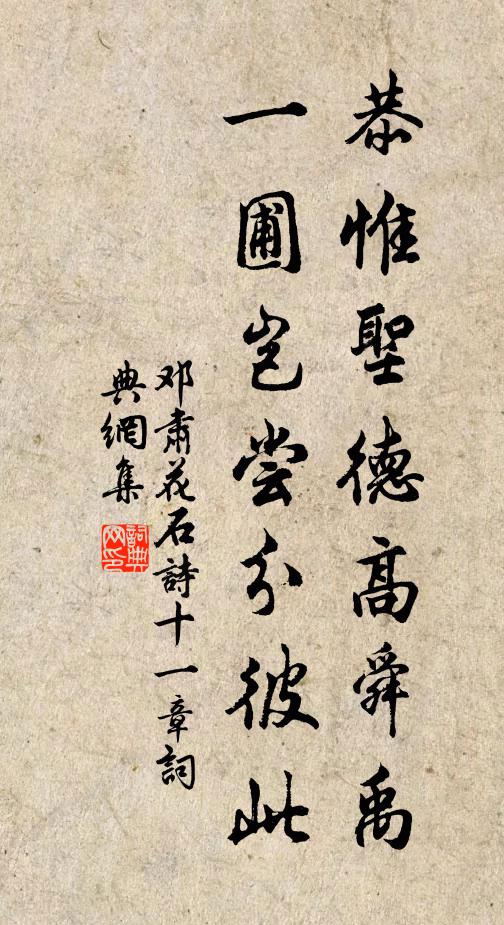 恭惟聖德高舜禹
一圃岂尝分彼此
邓肅花石詩十一章詞
典網集
詞典網印